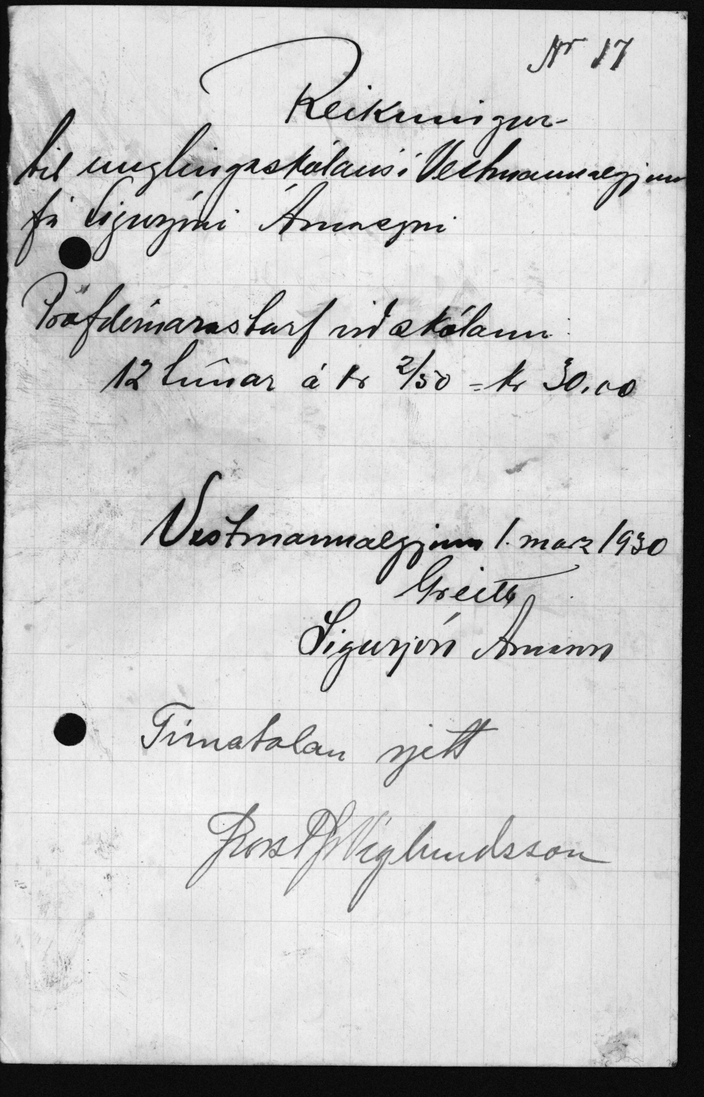 Nr 17
Reikningur
til unglingaskólans í Vestmannaeyjum
frá Sigurjóni Árnasyni
Prófdómarastarf við skólann
12 tímar á kr 2/50 = kr 30,00
Vestmannaeyjum 1. marz 1930
Greitt
Sigurjón Árnason
Tímatalan rjett
Þorst Þ Víglundsson